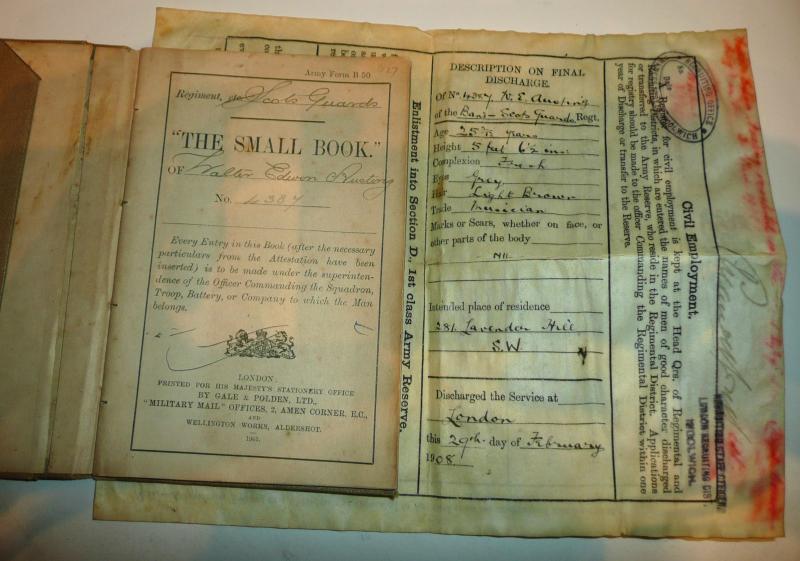 Army Form B 50
Regiment, Scots Guards
"THE SMALL BOOK."
OF Walter Edwin Austing
No. 4387
Every Entry in this Book (after the necessary
particulars from the Attestation have been
inserted) is to be made under the superinten-
dence of the Officer Commanding the Squadron,
Troop, Battery, or Company to which the Man
belongs.
LONDON:
PRINTED FOR HIS MAJESTY'S STATIONERY OFFICE
BY GALE & POLDEN, LTD.,
"MILITARY MAIL" OFFICES, 2, AMEN CORNER, E.C.,
AND
WELLINGTON WORKS, ALDERSHOT.
Enlistment into Section D., 1st class Army Reserve.
DESCRIPTION ON FINAL
DISCHARGE.
Of No. 4387 W. E. Austing
of the Band Scots Guards Regt.
Age 25 years
Height 5 feet 6½ ins
Complexion Fresh
Eyes Grey
Hair Light Brown
Trade Musician
Marks or Scars, whether on face, or
other parts of the body
Nil.
Intended place of residence
281 Lavender Hill
S.W.
Discharged the Service at
London
this 29th day of February
1908
Civil Employment.
Register for civil employment is kept at the Head Qrs. of Regimental and
Districts, in which are entered the names of men of good character discharged
or transferred to the Army Reserve, who reside in the Regimental District. Applications
for registry should be made to the officer Commanding the Regimental District within one
year of Discharge or transfer to the Reserve.
RECRUITING OFFICE
WOOLWICH
LONDON RECRUITING DIST.
WOOLWICH.